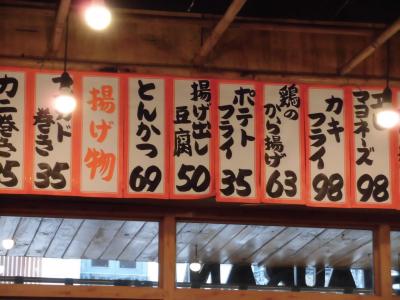 カニ巻き
アボカド巻き 35
揚げ物
とんかつ 69
揚げ出し豆腐 50
ポテトフライ 35
鶏のから揚げ 63
カキフライ 98
エ
マヨネーズ 98